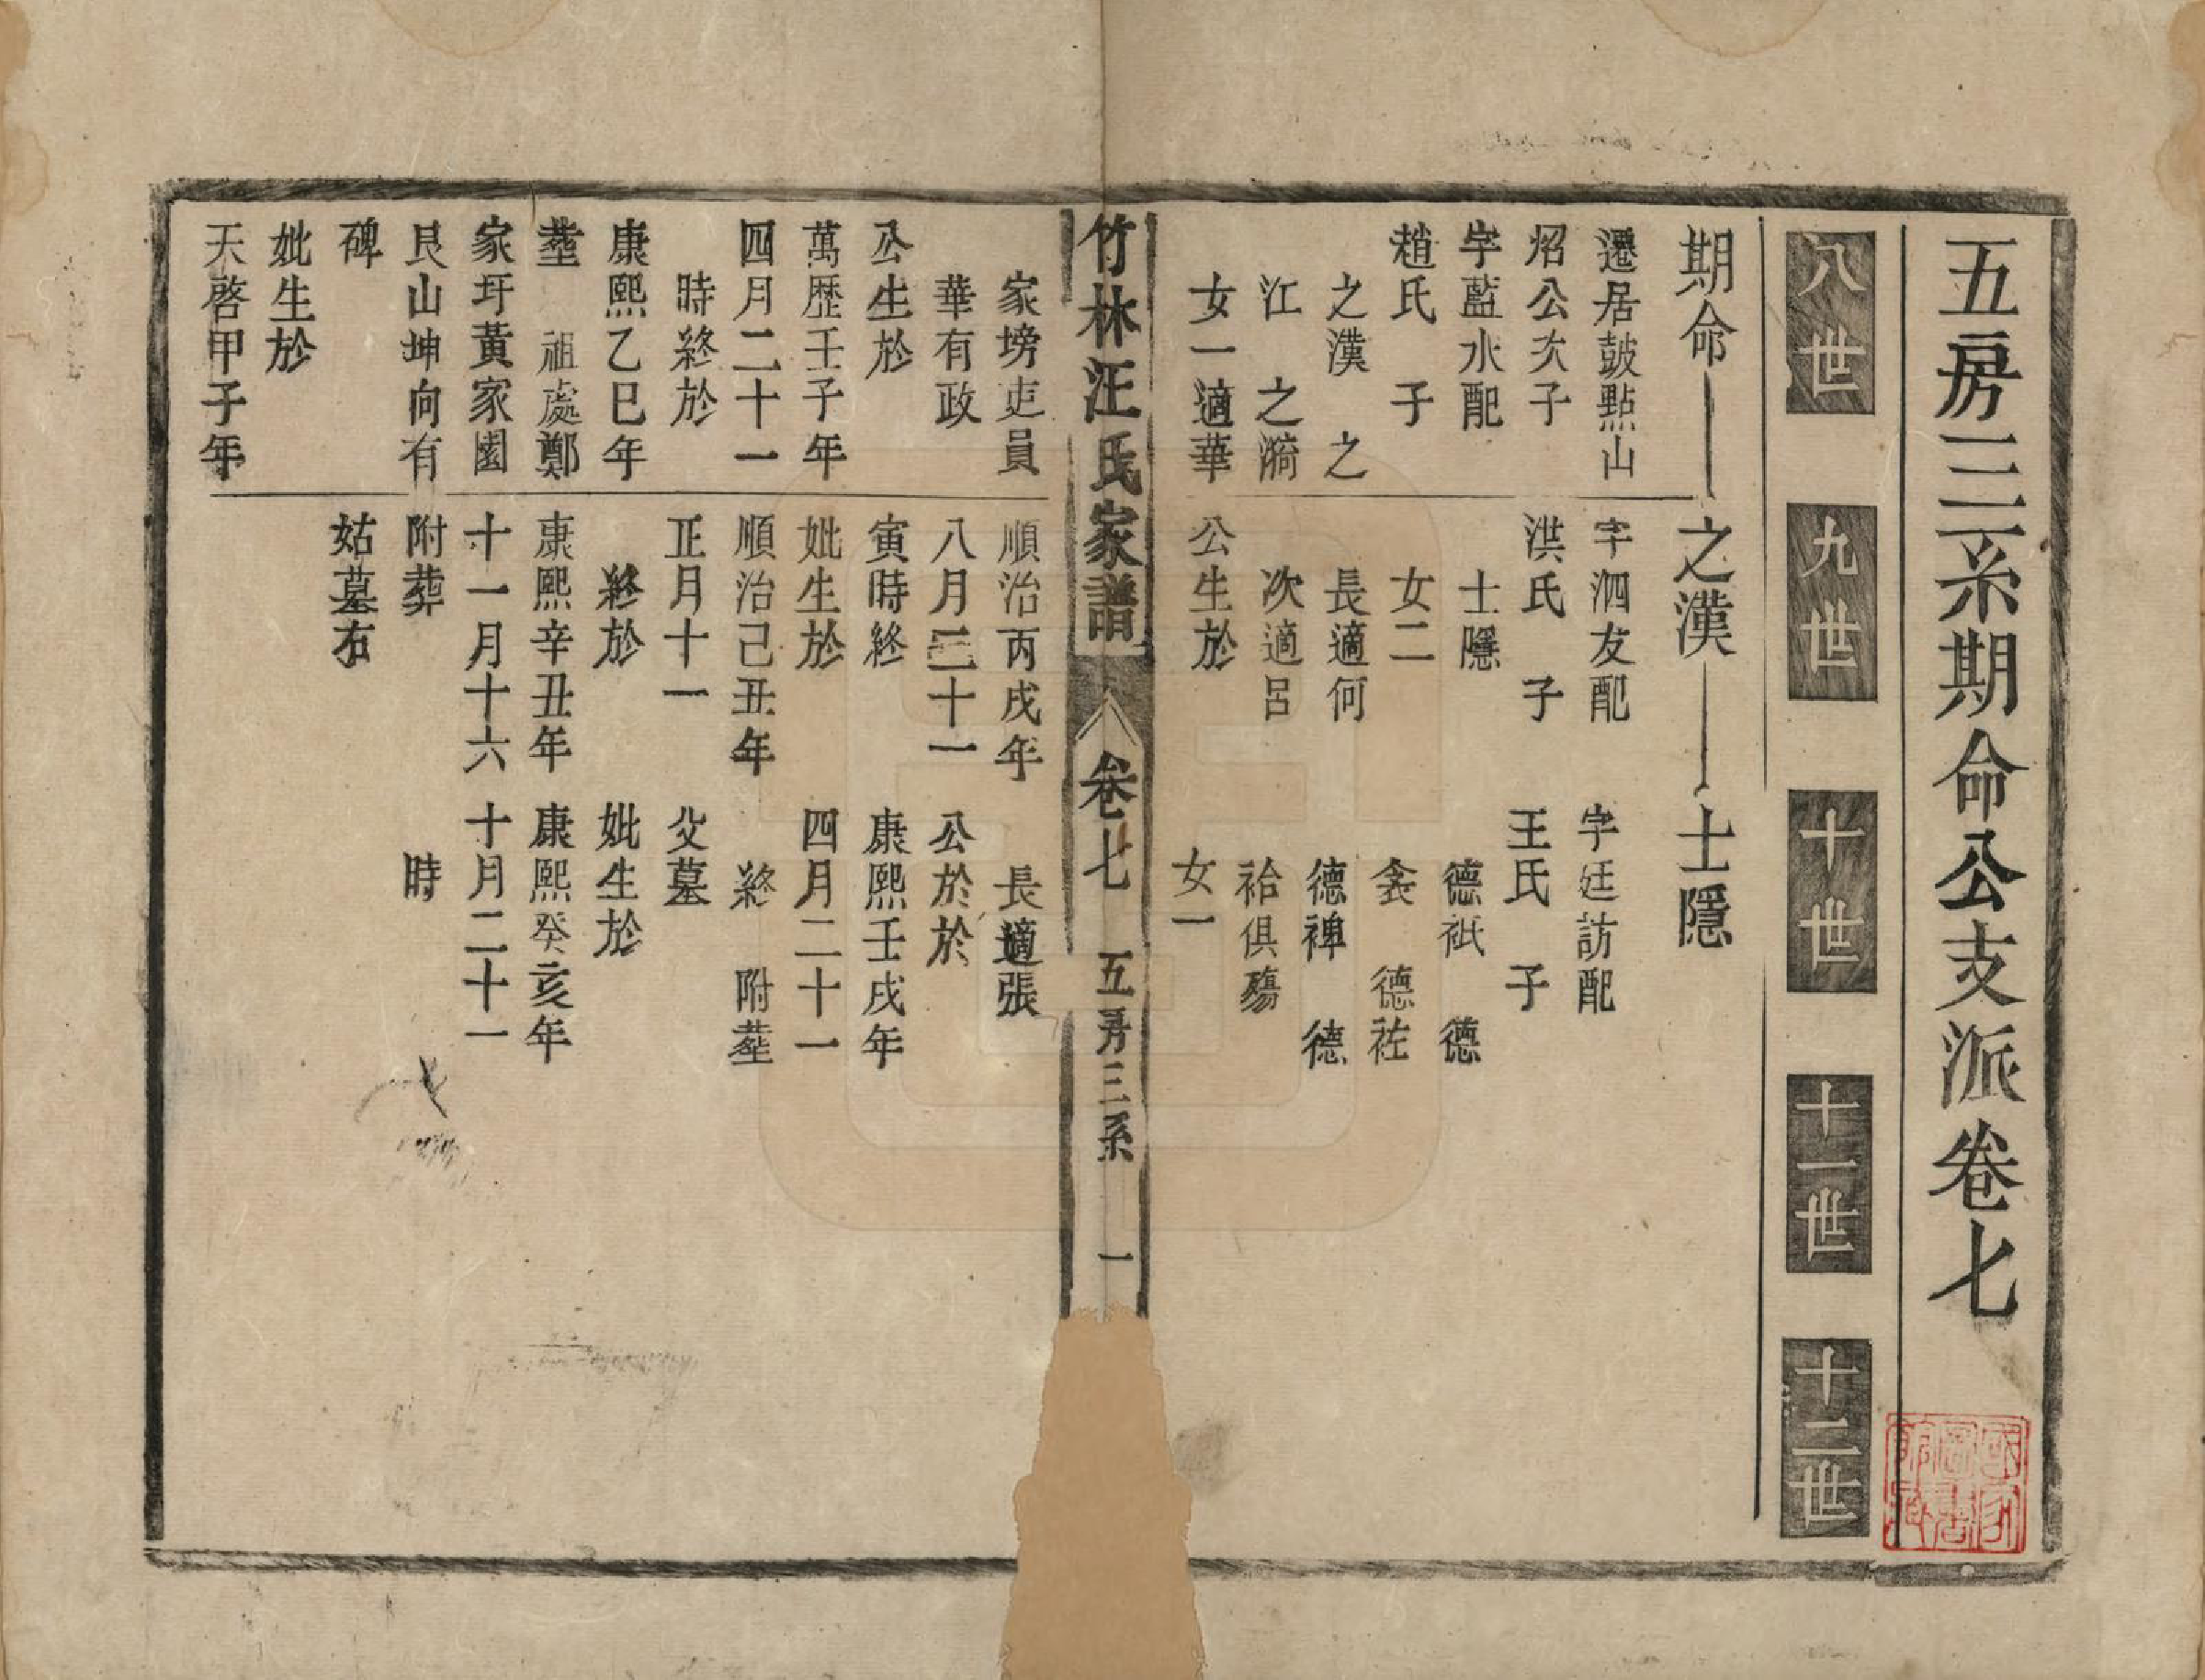 五房三系期命公支派卷七
八世
九世
十世
十一世
十二世
期命
遷居鼓點山
炤公次子
字藍水配
趙氏 子
之漢 之
江 之漪
女一適華
家塝吏員
華有政
公生於
萬歷壬子年
四月二十一
時終於
康熙乙巳年
塟 祖處鄭
家圩黃家園
艮山坤向有
碑
妣生於
天啓甲子年
之漢
字泗友配
洪氏 子
士隱
女二
長適何
次適呂
公生於
順治丙戌年
八月二十一
寅時終
妣生於
順治己丑年
正月十一
終於
康熙辛丑年
十一月十六
附葬
姑墓右
士隱
字廷訪配
王氏 子
德祇 德
衾 德祍
德裨 德
袷俱殤
女一
長適張
公於於
康熙壬戌年
四月二十一
終 附塟
父墓
妣生於
康熙癸亥年
十月二十一
時
竹林汪氏家譜 卷七 五房三系 一